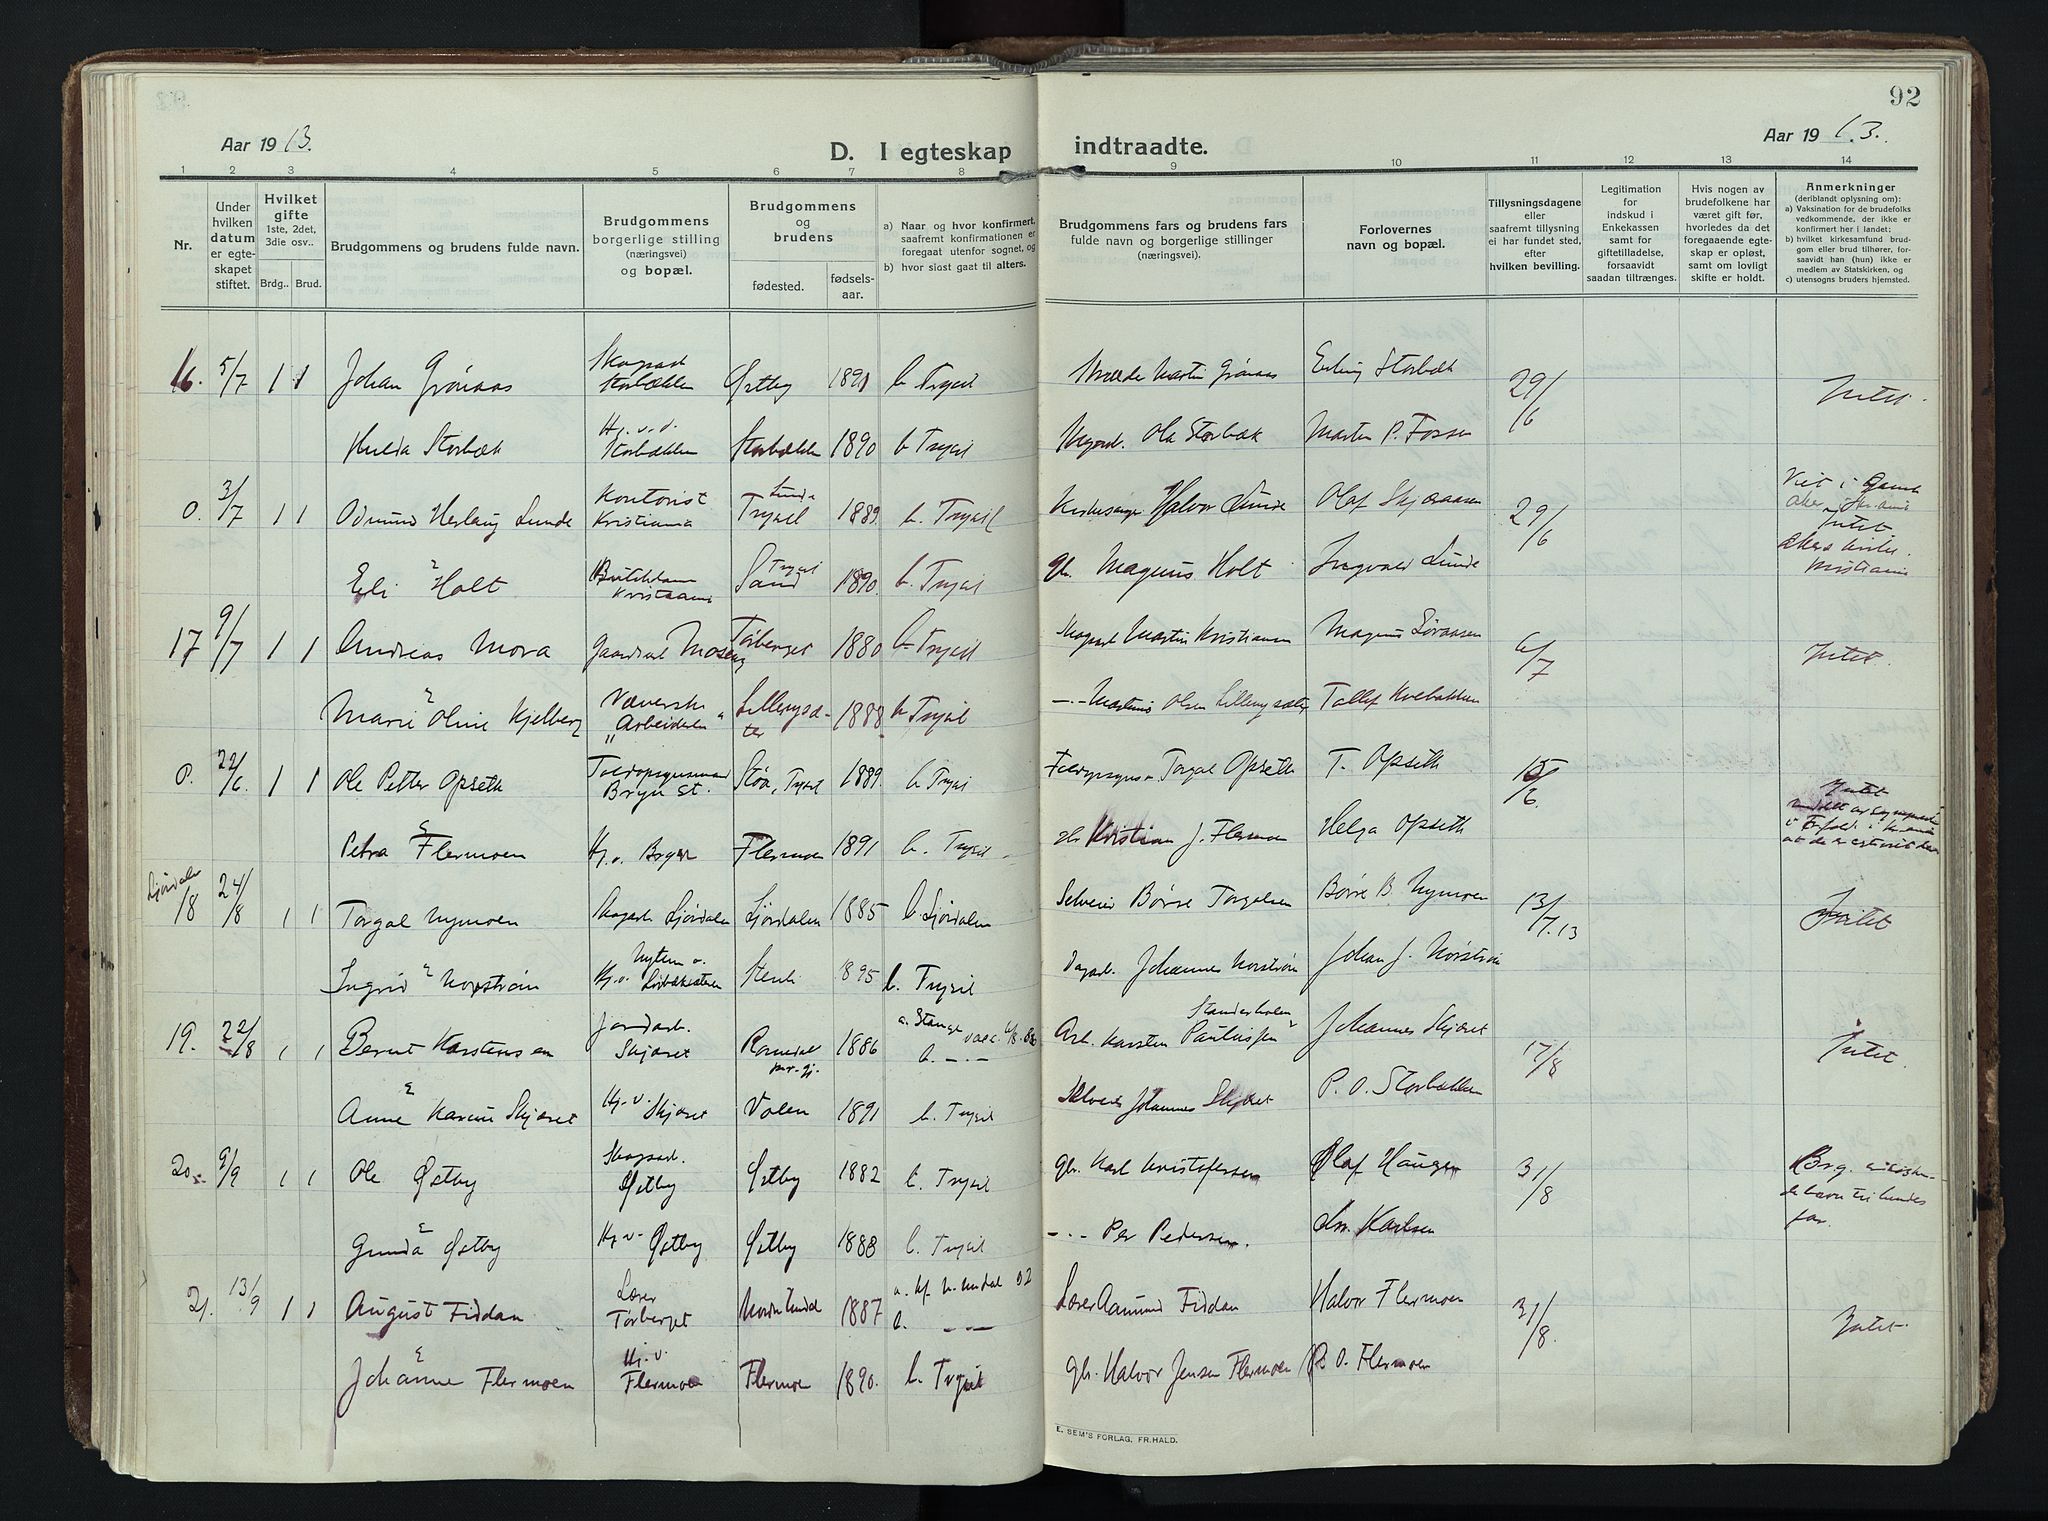 92
Aar 1913.
D. I egteskap indtraadte.
Aar 1913.
1 2 3 4 5 6 7 8 9 10 11 12 13 14
Nr.
Under hvilken datum er egteskapet stiftet.
Hvilket gifte 1ste, 2det, 3die osv..
Brdg.. Brud.
Brudgommens og brudens fulde navn.
Brudgommens borgerlige stilling (næringsvei) og bopæl.
Brudgommens og brudens
fødested.
fødselsaar.
a) Naar og hvor konfirmert, saafremt konfirmationen er foregaat utenfor sognet, og
b) hvor sidst gaat til alters.
Brudgommens fars og brudens fars fulde navn og borgerlige stillinger (næringsvei).
Forlovernes navn og bopæl.
Tillysningsdagene eller saafremt tillysning ei har fundet sted, efter hvilken bevilling.
Legitimation for indskud i Enkekassen samt for giftetilladelse, forsaavidt saadan tiltrænges.
Hvis nogen av brudefolkene har været gift før, hvorledes da det foregaaende egteskap er opløst, samt om lovligt skifte er holdt.
Anmerkninger (deriblandt oplysning om):
a) Vaksination for de brudefolks vedkommende, der ikke er konfirmert her i landet;
b) hvilket kirkesamfund brudgom eller brud tilhører, forsaavidt han (hun) ikke er medlem av Statskirken, og
c) utensogns bruders hjemsted.
16. 5/7 1 1 Johan Grønaas Storbækken Østby 1891 b Trysil Martin Grønaas Erling Storbæk 29/6 Intet.
Hulda Storbæk Hj. v. d. Storbækken Storbækken 1890 b Trysil Ola Storbæk Martin P. Fossen
0. 3/7 1 1 Odmund Herlaug Lunde Kontorist Kristiania Lunde Trysil 1889 b. Trysil Kirkesanger Halvor Lunde Olaf Skjæraasen 29/6 Viet i Gamle Akers kirke. Kristiania Intet
Eli Holt Kristiania Sand Trysil 1890. b. Trysil gb. Magnus Holt Ingvald Lunde
17 9/7 1 1 Andreas Mora Gaardsarb. Moseng Tørberget 1880 b. Trysil Skogsarb Martin Kristiansen Magnus Søraasen 6/7 Intet.
Marie Oline Kjelberg Væverske "Arbeideren" Lillengsæter 1888 b Trysil -"- Martinus Olsen Lillengsæter Tollef Kvebakken
0. 22/6. 1 1 Ole Petter Opseth Toldopsynsmand Bryn st. Støa, Trysil 1889. b Trysil Torgal Opseth T. Opseth 15/6. Intet
Petra Flermoen Hj. v. Bryn Flermoen 1891 b. Trysil gb Kristian J. Flermoen Helga Opseth
Ljørdalen 18 24/8 1 1 Torgal Nymoen Skogsarb Ljørdalen Ljørdalen 1885 b. Ljørdalen Selveier Børre Torgalsen Børre B. Nymoen 13/7.13 Intet
Ingrid Norström 1895 b. Trysil Dagarb. Johannes Norström Johan J. Norström
19. 22/8 1 1 Bernt Karstensen Jordarb. Skjæret Romedal 1886 a. Stange b. -"- Arb. Karsten Paulussen Johannes Skjæret 17/8 Intet
Anne Karine Skjæret Hj. v. Skjæret Volen 1891 b. Trysil Selveier Johannes Skjæret P. O. Storbækken
20. 9/9 1 1 Ole Østby Skogsarb. Østby Østby 1882 b. Trysil gb. Karl Kristofersen Olaf Haugen 31/8
Gunda Østby Hj. v. Østby Østby 1888 b. Trysil -"- Per Pedersen. Karlsen
21. 13/9 1 1 August Fiddan Lærer Tørberget 1887 b. -"- Lærer Aamund Fiddan Halvor Flermoen 31/8. Intet.
Johanne Flermoen Hj. v. Flermoen Flermoen 1890. b. Trysil gb. Halvor Jensen Flermoen P. O. Flermoen
E. SEM'S FORLAG, FR.HALD.